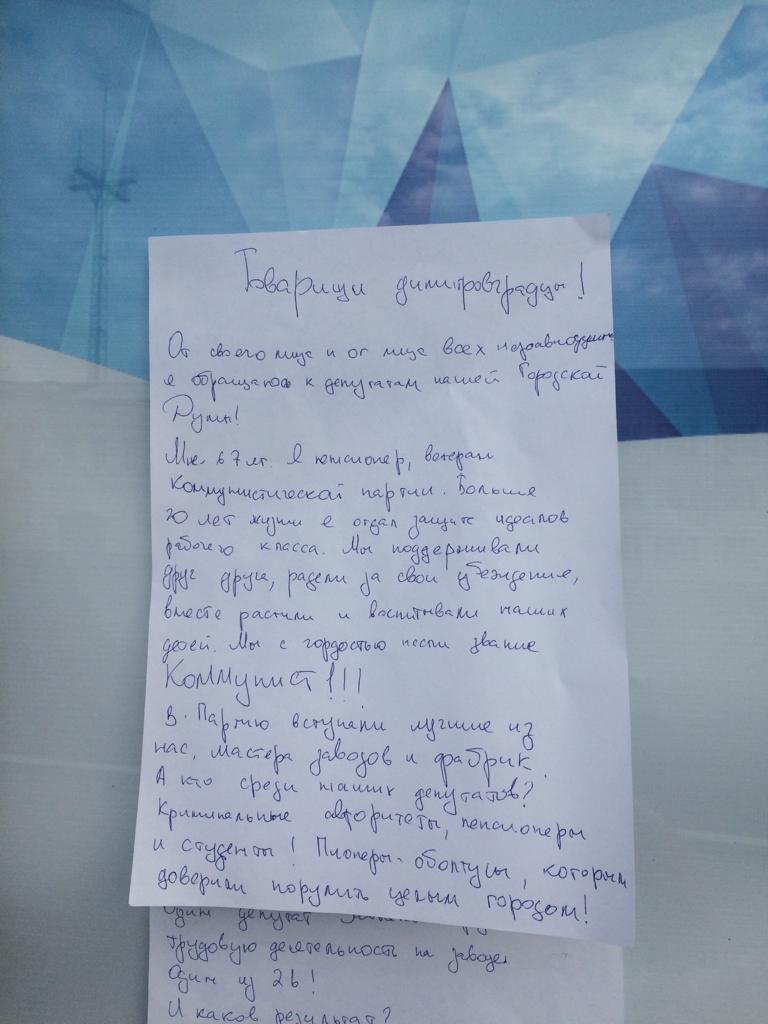 Товарищи димитровградцы!
От своего лица и от лица всех неравнодушных
я обращаюсь к депутатам нашей Городской
Думы!
Мне 67 лет. Я пенсионер, ветеран
Коммунистической партии. Больше
20 лет жизни я отдал защите идеалов
рабочего класса. Мы поддерживали
друг друга, радели за свои убеждения,
вместе растили и воспитывали наших
детей. Мы с гордостью несли звание
Коммунист!!!
В Партию вступали лучшие из
нас, мастера заводов и фабрик.
А кто среди наших депутатов?
Криминальные авторитеты, пенсионеры
и студенты! Пионеры-оболтусы, которым
доверили порулить целым городом!
Один депутат
трудовую деятельность на заводе.
Один из 26!
И каков результат?